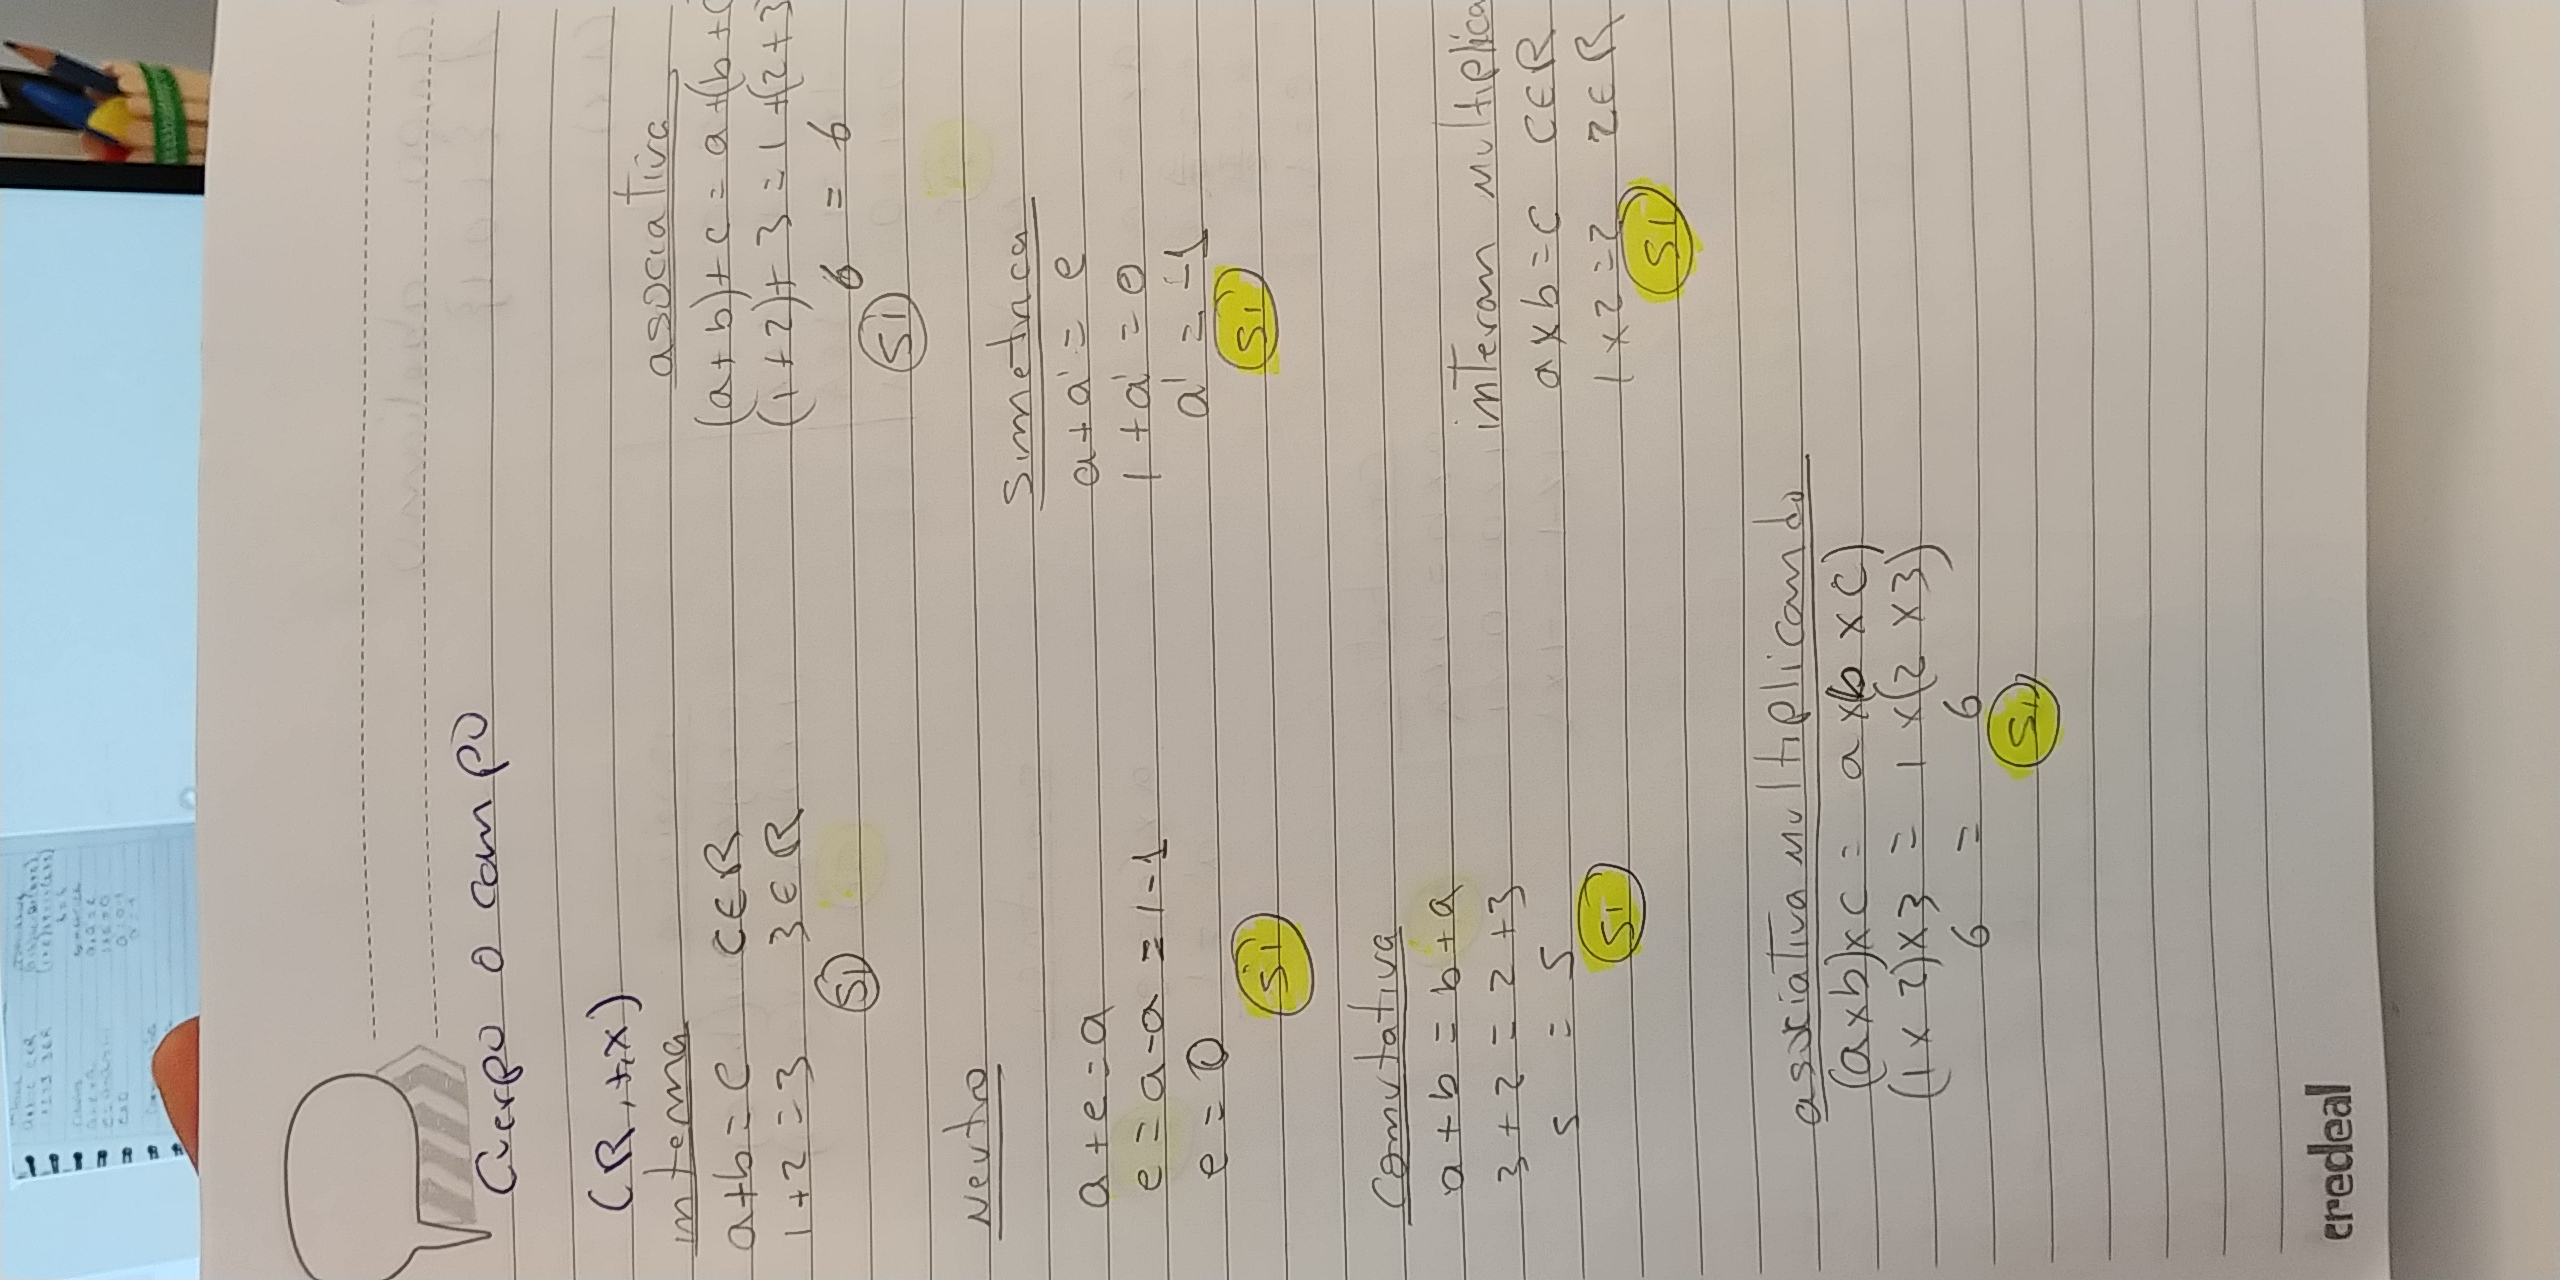 Cuerpo o campo
(R, +, x)
interna
a+b=c c∈R
1+2=3 3∈R
Si
asociativa
(a+b)+c=a+(b+c
(1+2)+3=1+(2+3)
6 = 6
Si
Neutro
a+e=a
e=a-a=1-1
e=0
Si
Simetrica
a+a'=e
1+a'=0
a'=-1
Si
Comutativa
a+b=b+a
3+2=2+3
5 = 5
Si
interan Multiplica
axb=c c∈R
1x2=2 2∈R
Si
asociativa Multiplicando
(axb)xc = ax(b x c)
(1x2)x3 = 1x(2 x3)
6 = 6
Si
credeal